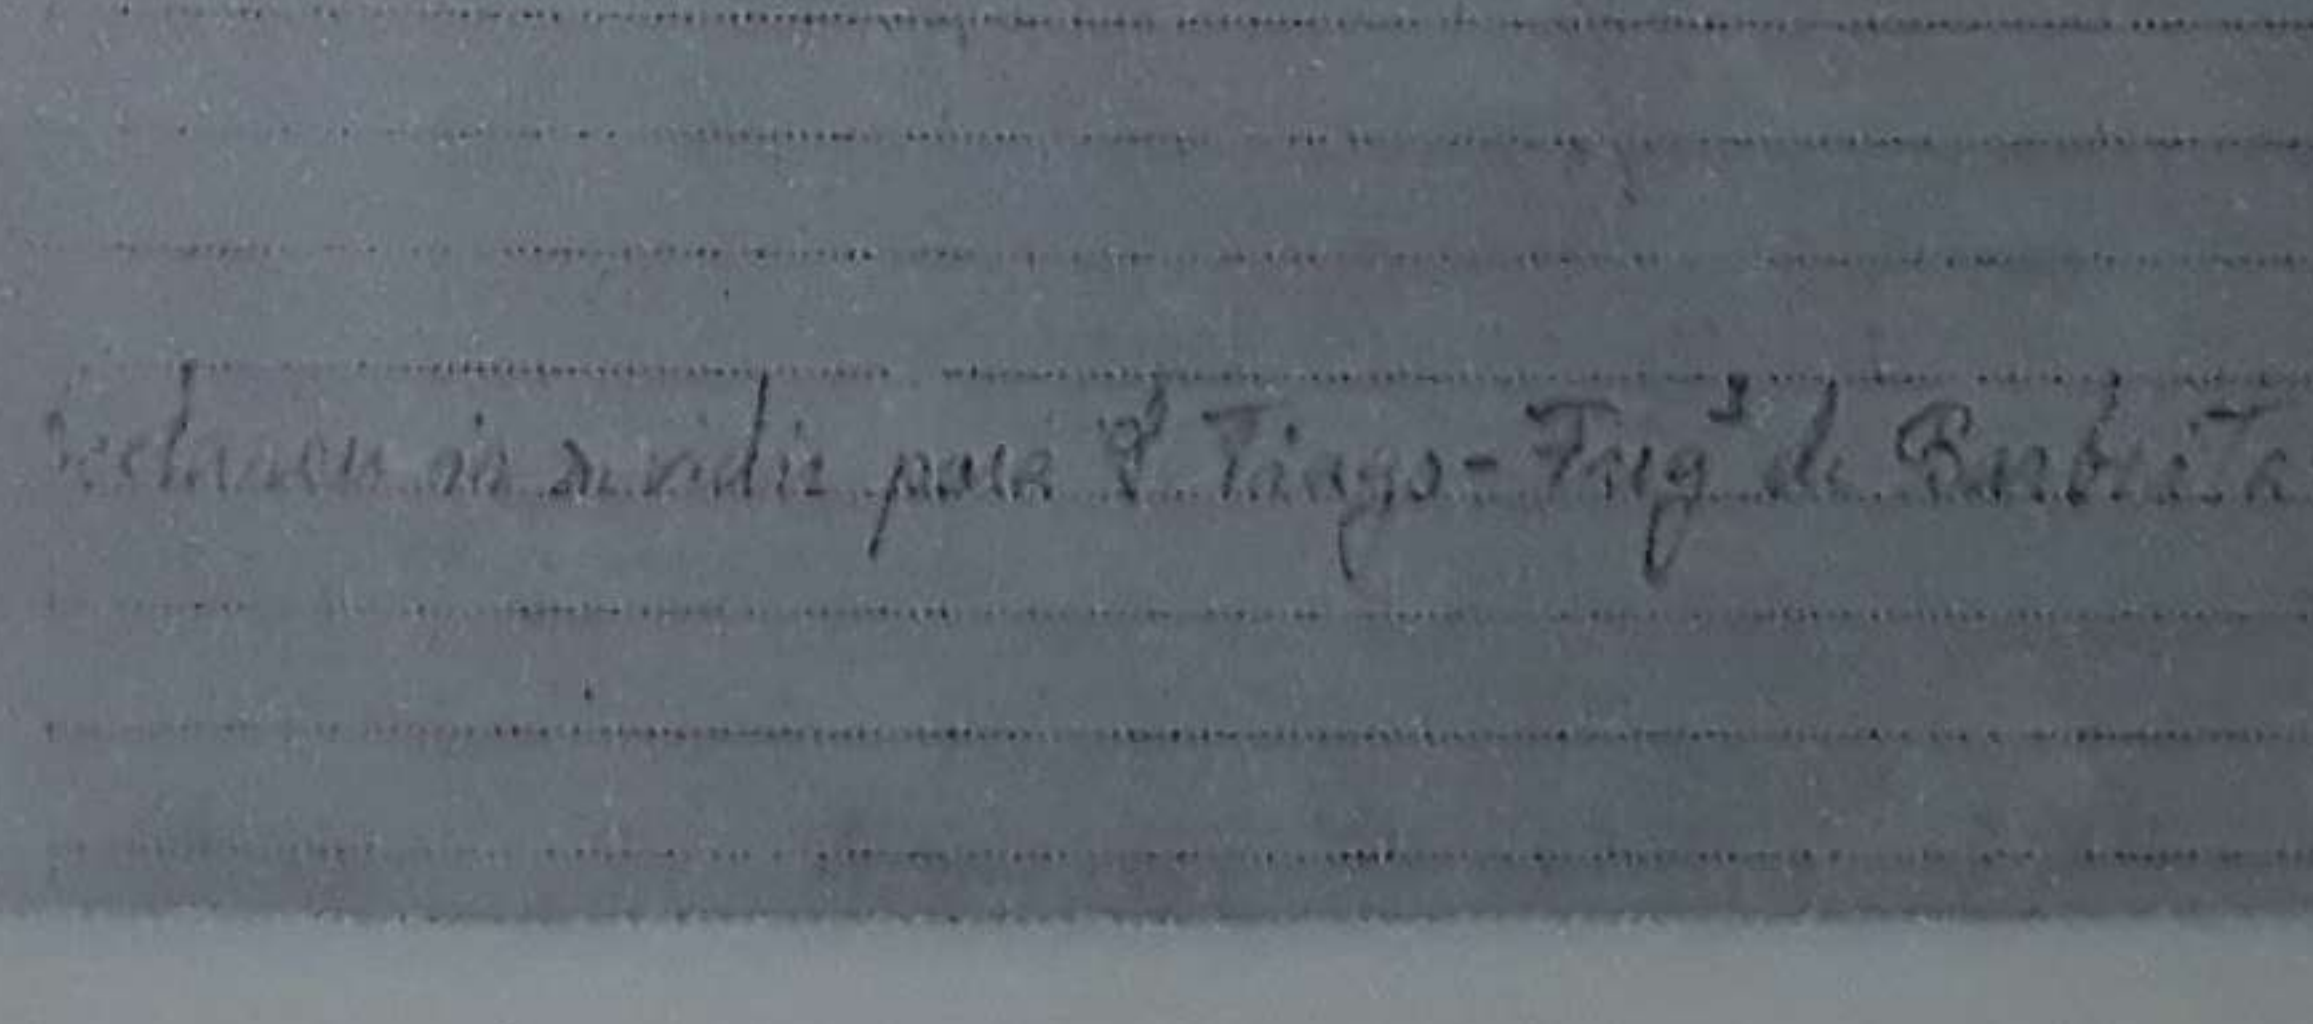 Declarou ir residir para S. Tiago - Freg.ª de Barbeita